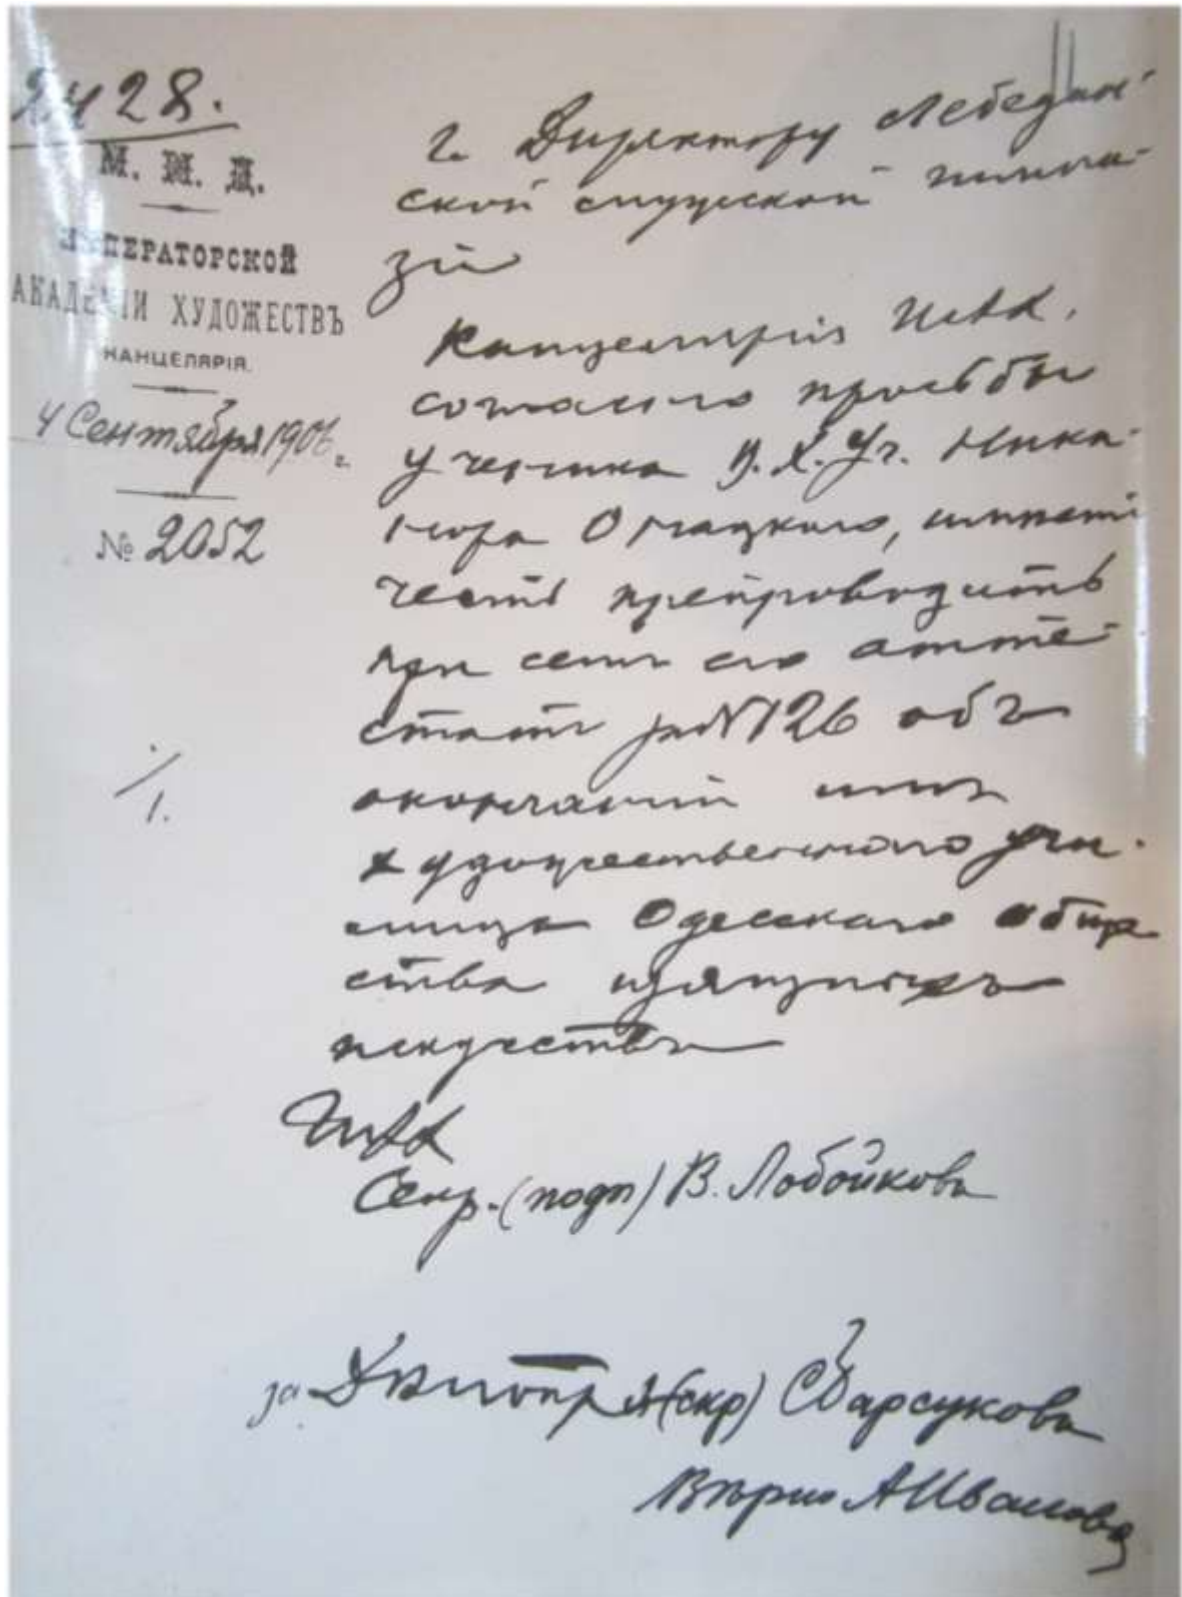 2428.
М. И. Д.
ИМПЕРАТОРСКОЙ
АКАДЕМІИ ХУДОЖЕСТВЪ
КАНЦЕЛЯРІЯ.
4 Сентября 1906 г.
№ 2052
1.
г. Директору Лебедин-
ской мужской гимна-
зіи
Канцелярія ИАХ.
согласно просьбы
ученика В. Х. Уч. Ника-
нора Онацкаго, имѣетъ
честь препроводить
при семъ его атте-
статъ за № 126 объ
окончаніи имъ
художественнаго учи-
лища Одесскаго общ
ства изящныхъ
искусствъ
ИАХ
Секр. (подп) В. Лобойковъ
за Дѣлопр (скр) Барсуковъ
Вѣрно А Иванова